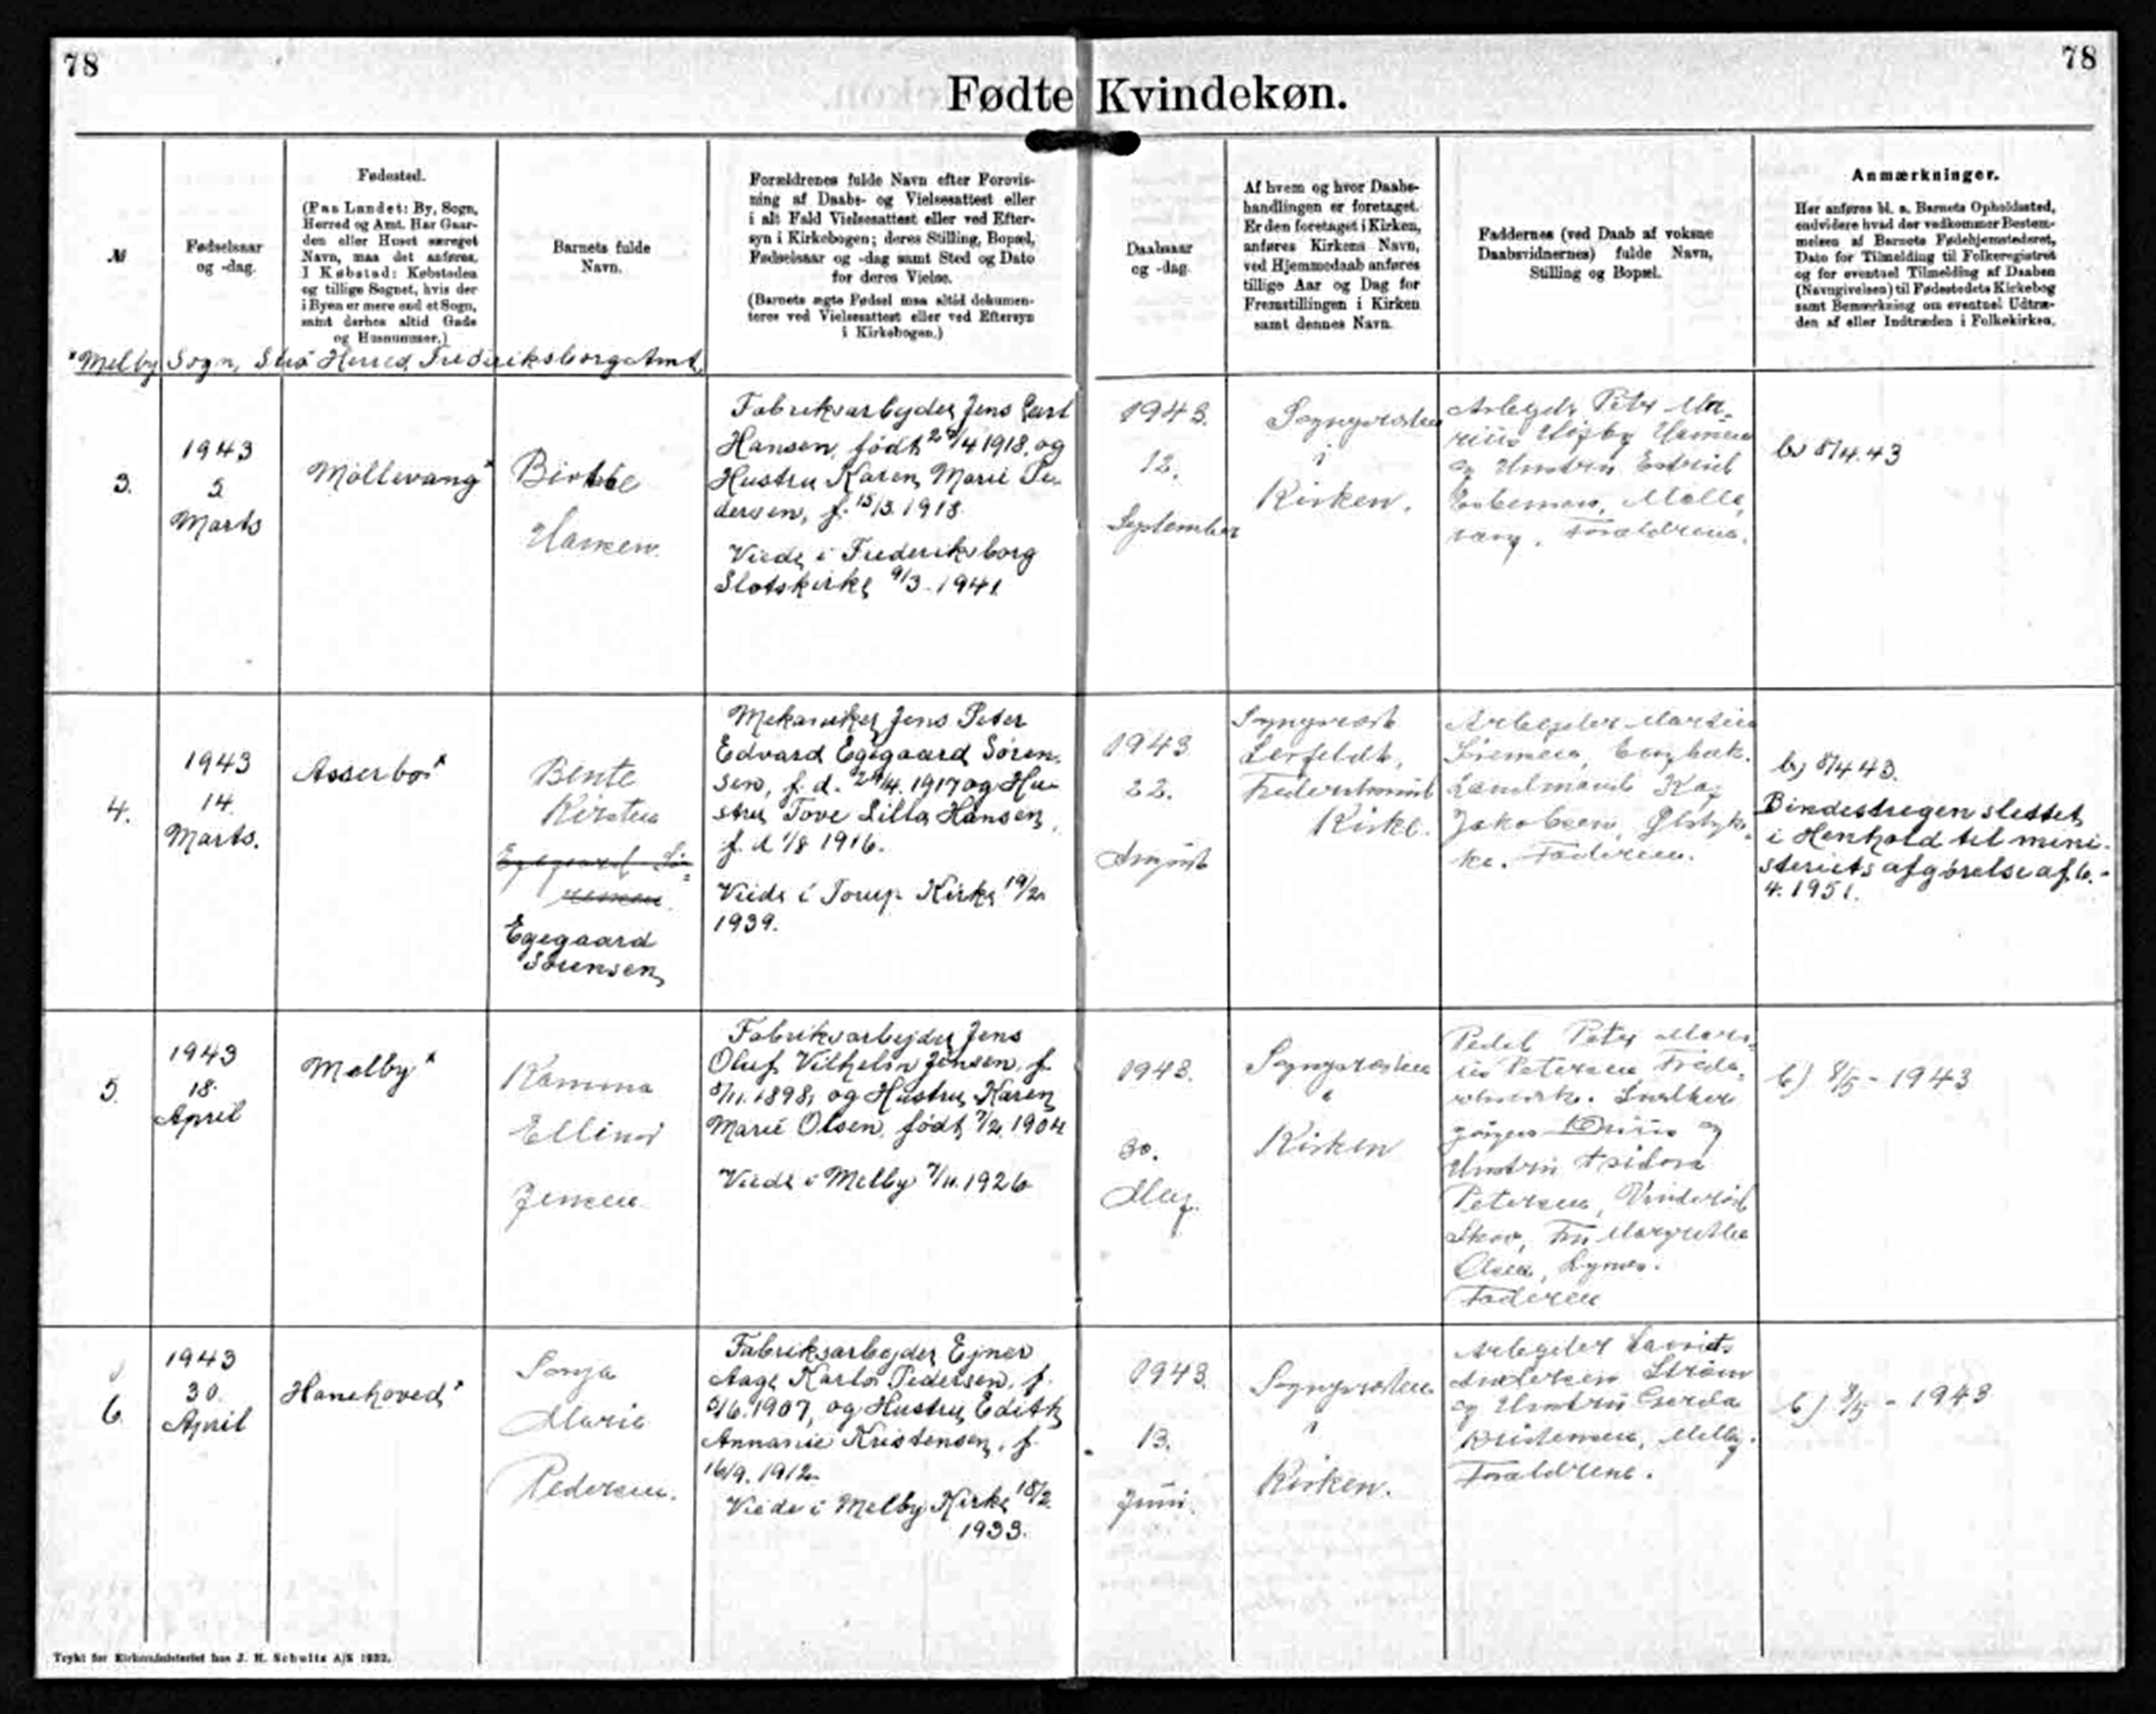 78
78
Fødte Kvindekøn.
№
Fødselsaar
og -dag.
Fødested.
(Paa Landet: By, Sogn,
Herred og Amt. Har Gaar-
den eller Huset særeget
Navn, maa det anføres.
I Købstad: Købstaden
og tillige Sognet, hvis der
i Byen er mere end et Sogn,
samt derhos altid Gade
og Husnummer.)
Barnets fulde
Navn.
Forældrenes fulde Navn efter Forevis-
ning af Daabs- og Vielsesattest eller
i alt Fald Vielsesattest eller ved Efter-
syn i Kirkebogen; deres Stilling, Bopæl,
Fødselsaar og -dag samt Sted og Dato
for deres Vielse.
(Barnets ægte Fødsel maa altid dokumen-
teres ved Vielsesattest eller ved Eftersyn
i Kirkebogen.)
Daabsaar
og -dag.
Af hvem og hvor Daabs-
handlingen er foretaget.
Er den foretaget i Kirken,
anføres Kirkens Navn,
ved Hjemmedaab anføres
tillige Aar og Dag for
Fremstillingen i Kirken
samt dennes Navn.
Faddernes (ved Daab af voksne
Daabsvidnernes) fulde Navn,
Stilling og Bopæl.
Anmærkninger.
Her anføres bl. a. Barnets Opholdssted,
endvidere hvad der vedkommer Bestem-
melsen af Barnets Fødehjemstedsret,
Dato for Tilmelding til Folkeregistret
og for eventuel Tilmelding af Daaben
(Navngivelsen) til Fødestedets Kirkebog
samt Bemærkning om eventuel Udtræ-
den af eller Indtræden i Folkekirken.
*Melby Sogn, Strø Herred, Frederiksborg Amt.
3.
1943
Marts
Møllevang*
Birthe
Hansen
Fabriksarbejder Jens Carl
Hansen, født 4 1918, og
Hustru Karen Marie Pe-
dersen, f. 15/3. 1918.
Viede i Frederiksborg
Slotskirke 9/3. 1941.
1943.
12.
September
Sognepræsten
i
Kirken.
Arbejder Peter Ma-
rius Højby Hansen
og Hustru
Mølle-
vang. Forældrene.
b) 8/4.43
4.
1943
14.
Marts.
Asserbo*
Bente
Kirsten
Egegaard-Sø-
rensen
Egegaard
Sørensen
Mekaniker Jens Peter
Edvard Egegaard Søren-
sen, f. d. 4. 1917 og Hu-
stru Tove Silla Hansen,
f. d. 1/8 1916.
Viede i Torup Kirke 19/2
1939.
1943.
22.
August
Sognepræst
Lerfeldt,
Frederiksværk
Kirke.
Arbejder Martin
Sørensen,
Landmand Kaj
Jakobsen,
Faderen.
b) 8/4 43.
Bindestregen slettet
i Henhold til mini-
steriets afgørelse af 6.-
4. 1951.
5.
1943
18.
April
Melby*
Kamma
Ellinor
Jensen
Fabriksarbejder Jens
Oluf Vilhelm Jensen, f.
8/11. 1898, og Hustru Karen
Marie Olsen, født 1904
Viede i Melby 7/11. 1926
1943.
30.
Maj.
Sognepræsten
i
Kirken
Peter Mari-
us Petersen Frede-
riksværk.
og
Hustru Isidora
Petersen, Vinderød
Skov, Fru Margrethe
Olsen, Lynæs.
Faderen
b) 8/5 - 1943
6.
1943
30.
April
Hanehoved*
Sonja
Marie
Pedersen.
Fabriksarbejder Ejner
Aage Karlo Pedersen, f.
6. 1907, og Hustru Edith
Annanie Kristensen, f.
16/9. 1912.
Viede i Melby Kirke 18/2
1933.
1943.
13.
Juni.
Sognepræsten
i
Kirken.
Arbejder Laurits
Andersen Strøm
og Hustru Gerda
Kristensen, Melby.
Forældrene.
b) 8/5 - 1943
Trykt for Kirkeministeriet hos J. H. Schultz A/S 1932.